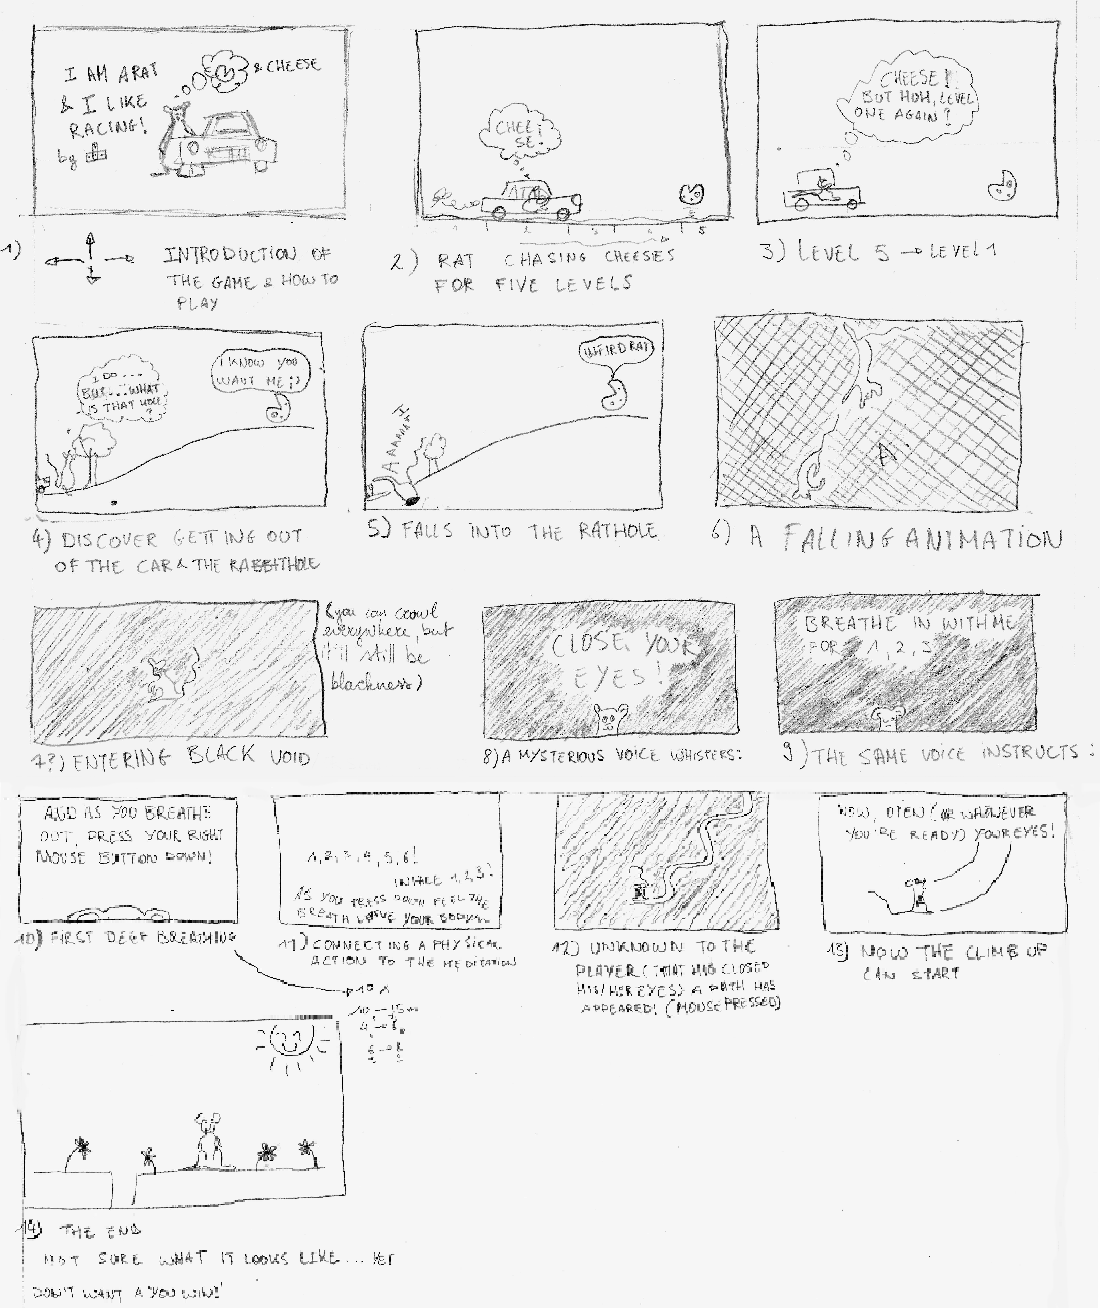 I AM A RAT
& I LIKE
RACING!
by
& CHEESE
1)
INTRODUCTION OF
THE GAME & HOW TO
PLAY
CHEE
SE!
5
2) RAT CHASING CHEESES
FOR FIVE LEVELS
CHEESE!
BUT HUH, LEVEL
ONE AGAIN?
3) LEVEL 5 → LEVEL 1
I DO ...
BUT ... WHAT
IS THAT HOLE
?
I KNOW YOU
WANT ME ;)
4) DISCOVER GETTING OUT
OF THE CAR & THE RABBITHOLE
WEIRD RAT
AAAAAAAH
5) FALLS INTO THE RATHOLE
A
6) A FALLING ANIMATION
(you can crawl
everywhere, but
it'll still be
blackness)
7?) ENTERING BLACK VOID
CLOSE YOUR
EYES!
8) A MYSTERIOUS VOICE WHISPERS:
BREATHE IN WITH ME
FOR 1, 2, 3
9) THE SAME VOICE INSTRUCTS:
AND AS YOU BREATHE
OUT, PRESS YOUR RIGHT
MOUSE BUTTON DOWN!
10) FIRST DEEP BREATHING
1, 2, 3, 4, 5, 6!
INHALE 1, 2, 3!
AS YOU PRESS DOWN FEEL THE
BREATH LEAVE YOUR BODY
11) CONNECTING A PHYSICAL
ACTION TO THE MEDITATION
12) UNKNOWN TO THE
PLAYER (THAT HAS CLOSED
HIS/HER EYES) A PATH HAS
APPEARED! (MOUSE PRESSED)
NOW, OPEN (OR WHENEVER
YOU'RE READY) YOUR EYES!
13) NOW THE CLIMB UP
CAN START
10 X
14) THE END
NOT SURE WHAT IT LOOKS LIKE ... YET
DON'T WANT A 'YOU WIN!'